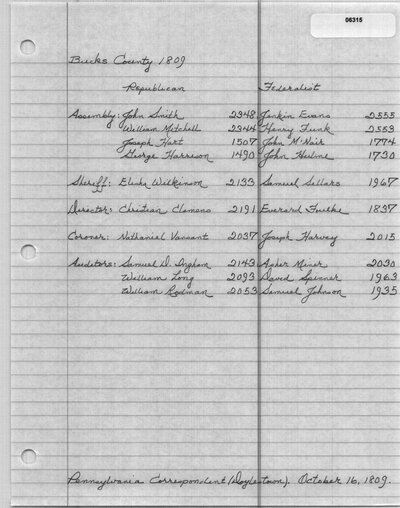 06315
Bucks County 1809
Republican Federalist
Assembly: John Smith 2348 Jenkin Evans 2555
William Mitchell 2344 Henry Funk 2553
Joseph Hart 1507 John McNair 1774
George Harrison 1490 John Hulme 1730
Sheriff: Elisha Wilkinson 2133 Samuel Sellars 1967
Director: Christian Clemens 2191 Everard Foulke 1837
Coroner: Nathaniel Vansant 2037 Joseph Harvey 2015
Auditors: Samuel D. Ingham 2143 Asher Miner 2030
William Long 2093 David Spinner 1963
William Rodman 2053 Samuel Johnson 1935
Pennsylvania Correspondent (Doylestown). October 16, 1809.